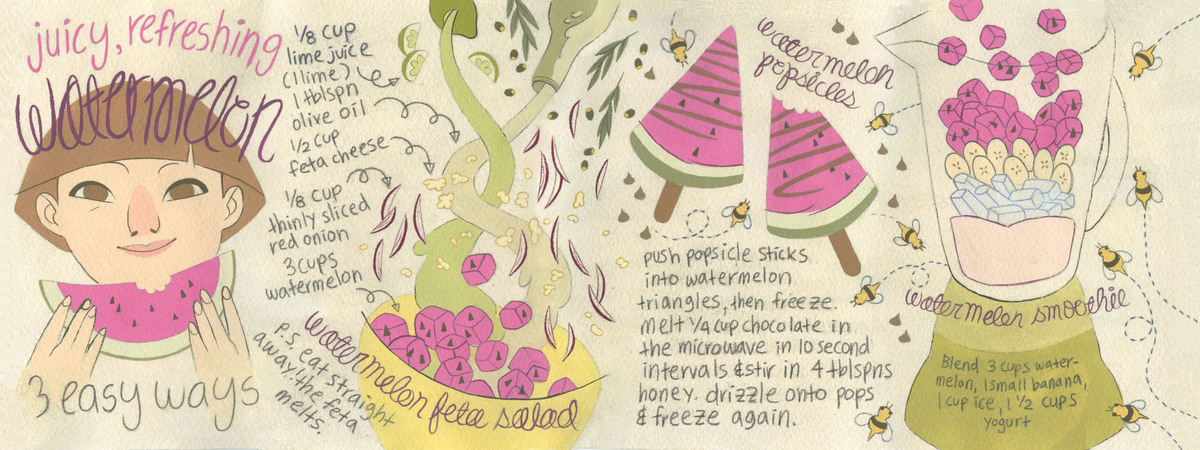 juicy, refreshing
watermelon
3 easy ways
1/8 cup
lime juice
(1 lime)
1 tblspn
olive oil
1/2 cup
feta cheese
1/8 cup
thinly sliced
red onion
3 cups
watermelon
P.S. eat straight
away! the feta
melts.
watermelon feta salad
watermelon
popsicles
push popsicle sticks
into watermelon
triangles, then freeze.
melt 1/4 cup chocolate in
the microwave in 10 second
intervals & stir in 4 tblspns
honey. drizzle onto pops
& freeze again.
watermelon smoothie
Blend 3 cups water-
melon, 1 small banana,
1 cup ice, 1 1/2 cups
yogurt